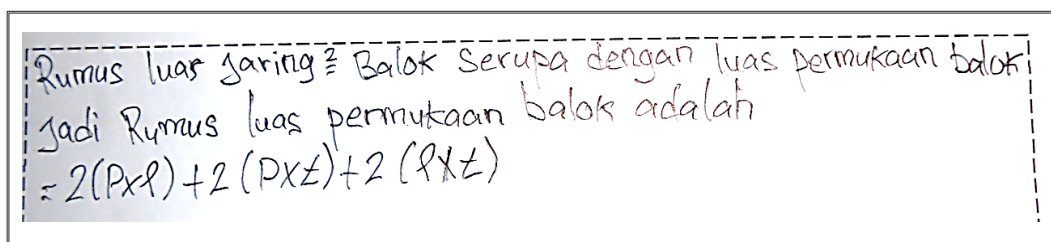 Rumus luas jaring² Balok Serupa dengan luas permukaan balok
Jadi Rumus luas permukaan balok adalah
= 2(Pxl)+2(pxt)+2(lxt)